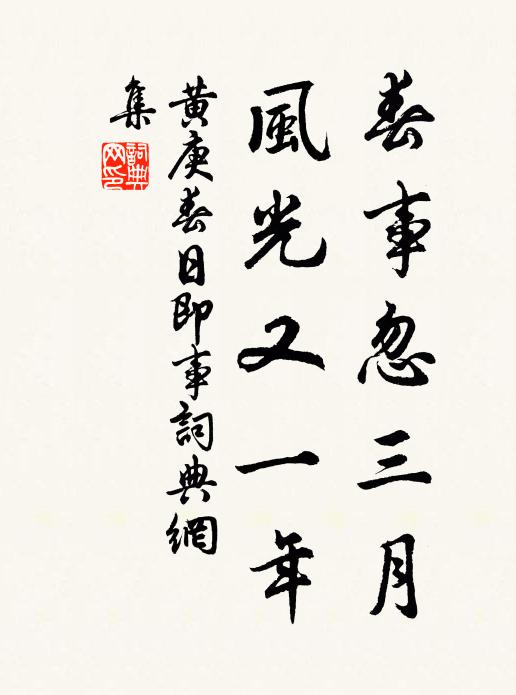 春事忽三月
風光又一年
黃庚春日即事詞典網
集
詞典
网印